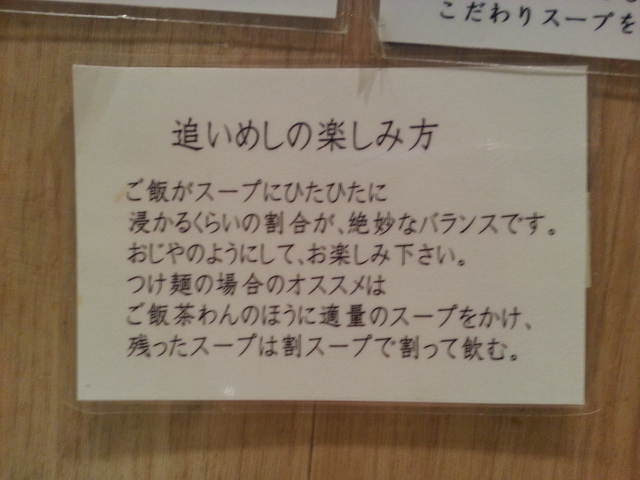 こだわりスープを
追いめしの楽しみ方
ご飯がスープにひたひたに
浸かるくらいの割合が、絶妙なバランスです。
おじやのようにして、お楽しみ下さい。
つけ麺の場合のオススメは
ご飯茶わんのほうに適量のスープをかけ、
残ったスープは割スープで割って飲む。